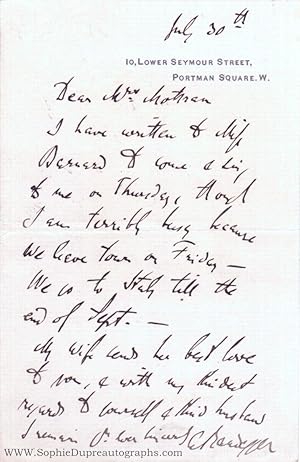 July 30th
10, LOWER SEYMOUR STREET,
PORTMAN SQUARE. W.
Dear Mrs
I have written to Miss
Barnard to come & sing
to me on Thursday, though
I am terribly busy because
we leave Town on Friday —
We go to Italy till the
end of Sept. —
My wife sends her best love
to you, & with my kindest
regards to yourself & husband
I remain Yr very sincerely A Randegger
www.SophieDupreautographs.com